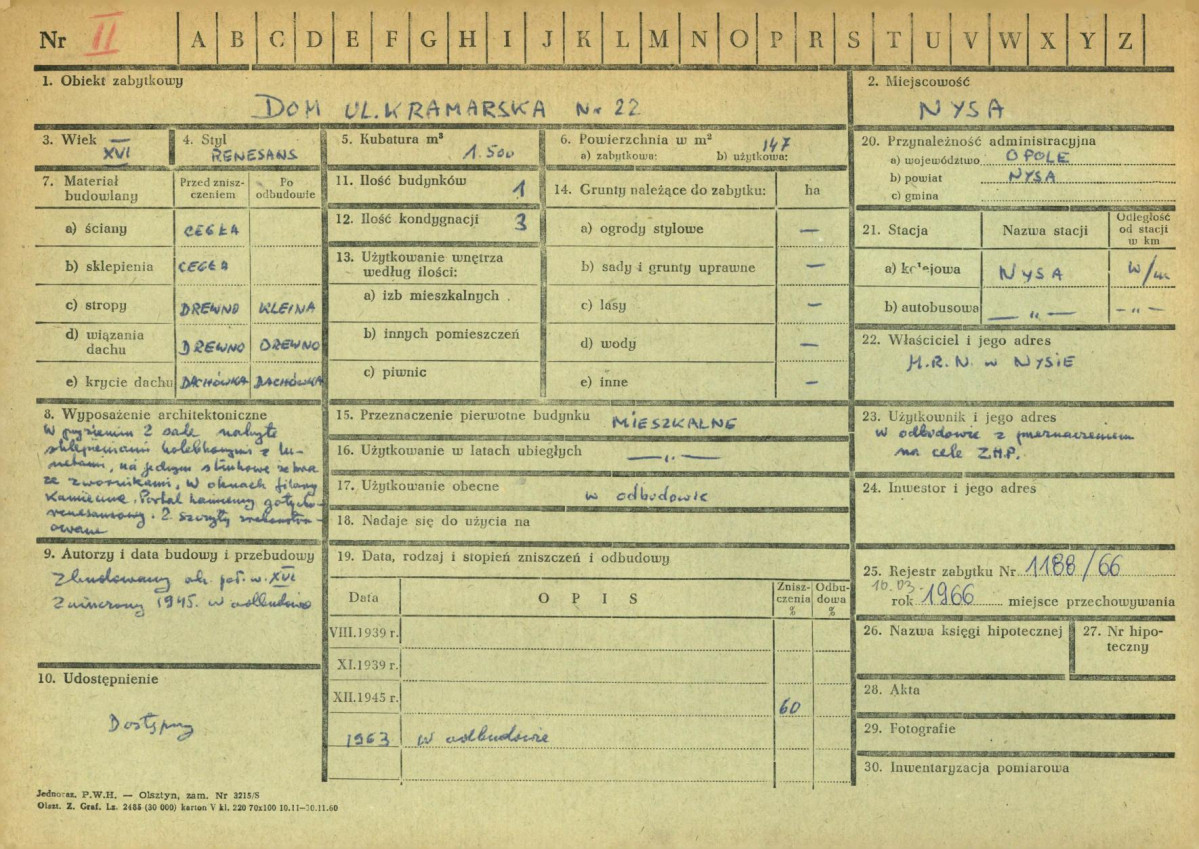 Nr II A B C D E F G H I J K L M N O P R S T U V W X Y Z
1. Obiekt zabytkowy
DOM UL. KRAMARSKA Nr 22
2. Miejscowość
NYSA
3. Wiek XVI
4. Styl
RENESANS
5. Kubatura m³
1.500
6. Powierzchnia w m²
a) zabytkowa: b) użytkowa: 147
20. Przynależność administracyjna
a) województwo OPOLE
b) powiat NYSA
c) gmina
7. Materiał budowlany
Przed zniszczeniem
Po odbudowie
a) ściany CEGŁA
b) sklepienia CEGŁA
c) stropy DREWNO KLEINA
d) wiązania dachu DREWNO DREWNO
e) krycie dachu DACHÓWKA DACHÓWKA
11. Ilość budynków 1
12. Ilość kondygnacji 3
13. Użytkowanie wnętrza
według ilości:
a) izb mieszkalnych
b) innych pomieszczeń
c) piwnic
14. Grunty należące do zabytku: ha
a) ogrody stylowe —
b) sady i grunty uprawne —
c) lasy —
d) wody —
e) inne —
21. Stacja Nazwa stacji Odległość od stacji w km
a) kolejowa NYSA w/m
b) autobusowa — „ — — „ —
22. Właściciel i jego adres
M.R.N. w NYSIE
8. Wyposażenie architektoniczne
W przyziemiu 2 sale nakryte
sklepieniami kolebkowymi z lu-
netami, na jednym stiukowe
ze zwornikami, w oknach filary
kamienne. Portal kamienny gotycko
renesansowy. 2 szczyty
15. Przeznaczenie pierwotne budynku MIESZKALNE
16. Użytkowanie w latach ubiegłych — „ —
17. Użytkowanie obecne w odbudowie
18. Nadaje się do użycia na
23. Użytkownik i jego adres
w odbudowie z przeznaczeniem
na cele Z.H.P.
24. Inwestor i jego adres
9. Autorzy i data budowy i przebudowy
Zbudowany ok. poł. w. XVI
Zniszczony 1945. w odbudowie
19. Data, rodzaj i stopień zniszczeń i odbudowy
Data O P I S Zniszczenia % Odbudowa %
VIII.1939 r.
XI.1939 r.
XII.1945 r. 60
1963 w odbudowie
25. Rejestr zabytku Nr 1188/66
10.03. rok 1966 miejsce przechowywania
26. Nazwa księgi hipotecznej
27. Nr hipoteczny
28. Akta
29. Fotografie
30. Inwentaryzacja pomiarowa
10. Udostępnienie
Dostępny
Jednoraz. P.W.H. — Olsztyn, zam. Nr 3215/S
Olszt. Z. Graf. Lz. 2485 (30 000) karton V kl. 220 70x100 10.11—30.11.60